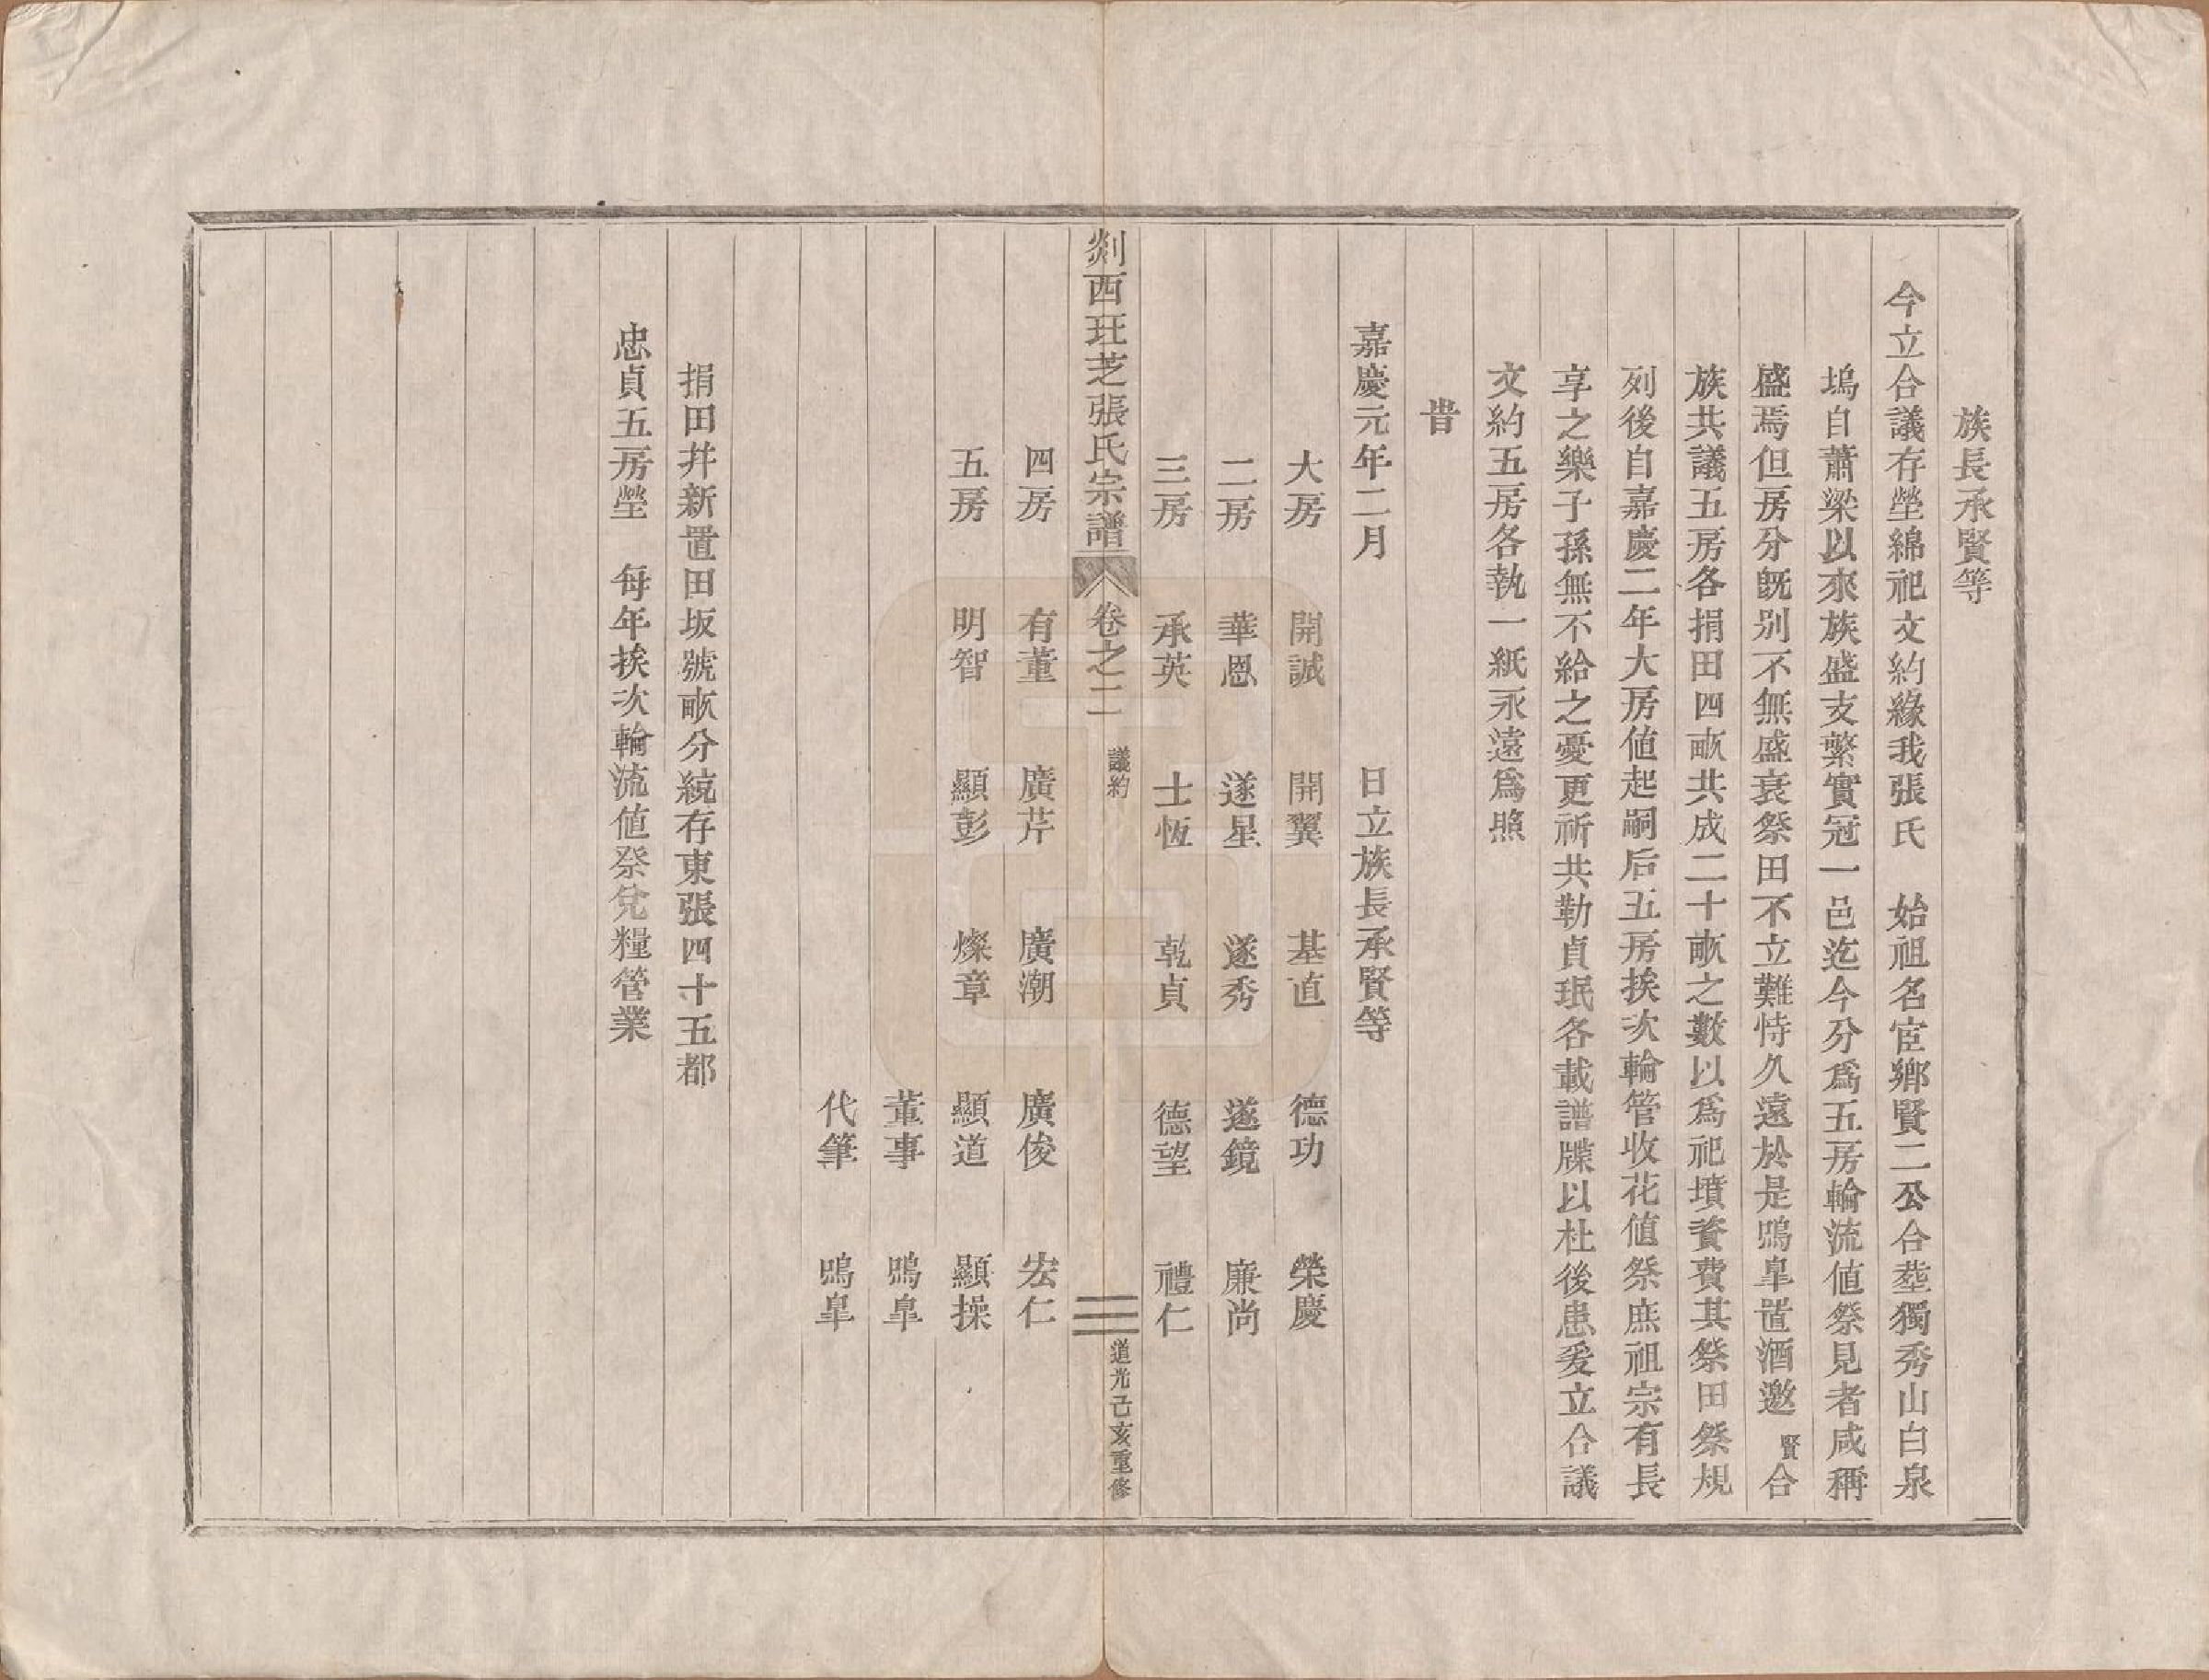 族長承賢等
今立合議存塋綿祀文約緣我張氏　始祖名宦鄉賢二公合塟獨秀山白泉
塢自蕭梁以來族盛支繁實冠一邑迄今分爲五房輪流値祭見者咸稱
盛焉但房分旣别不無盛衰祭田不立難恃久遠於是鳴臯置酒邀賢合
族共議五房各捐田四畝共成二十畝之數以爲祀墳資費其祭田祭規
列後自嘉慶二年大房値起嗣后五房挨次輪管收花値祭庶祖宗有長
享之樂子孫無不給之憂更祈共勒貞珉各載譜牒以杜後患爰立合議
文約五房各執一紙永遠爲照
旹
嘉慶元年二月　日立族長承賢等
大房　開誠　開翼　基直　德功　榮慶
二房　華恩　遂星　遂秀　遂鏡　廉尚
三房　承英　士恆　乾貞　德望　禮仁
剡西玨芝張氏宗譜　卷之二　議約　三　道光己亥重修
四房　有董　廣芹　廣潮　廣俊　宏仁
五房　明智　顯彭　燦章　顯道　顯操
董事　鳴臯
代筆　鳴臯
捐田幷新置田坂號畝分統存東張四十五都
忠貞五房塋　每年挨次輪流値祭兌糧管業